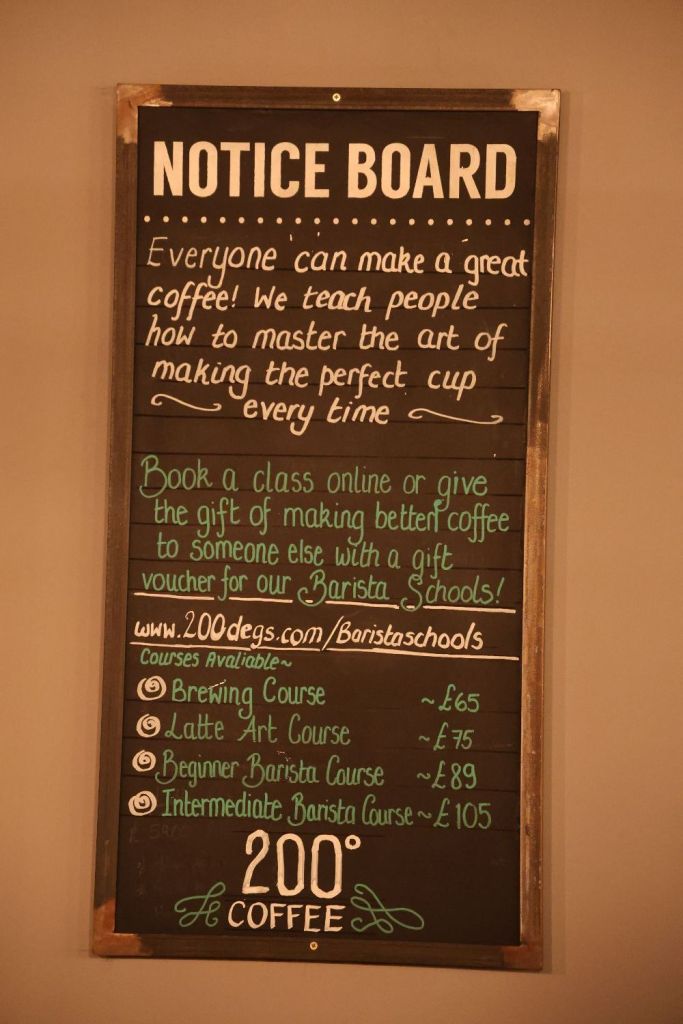 NOTICE BOARD
Everyone can make a great
coffee! We teach people
how to master the art of
making the perfect cup
every time
Book a class online or give
the gift of making better coffee
to someone else with a gift
voucher for our Barista Schools!
www.200degs.com/Baristaschools
Courses Avaliable~
Brewing Course ~£65
Latte Art Course ~£75
Beginner Barista Course ~£89
Intermediate Barista Course ~£105
200°
COFFEE